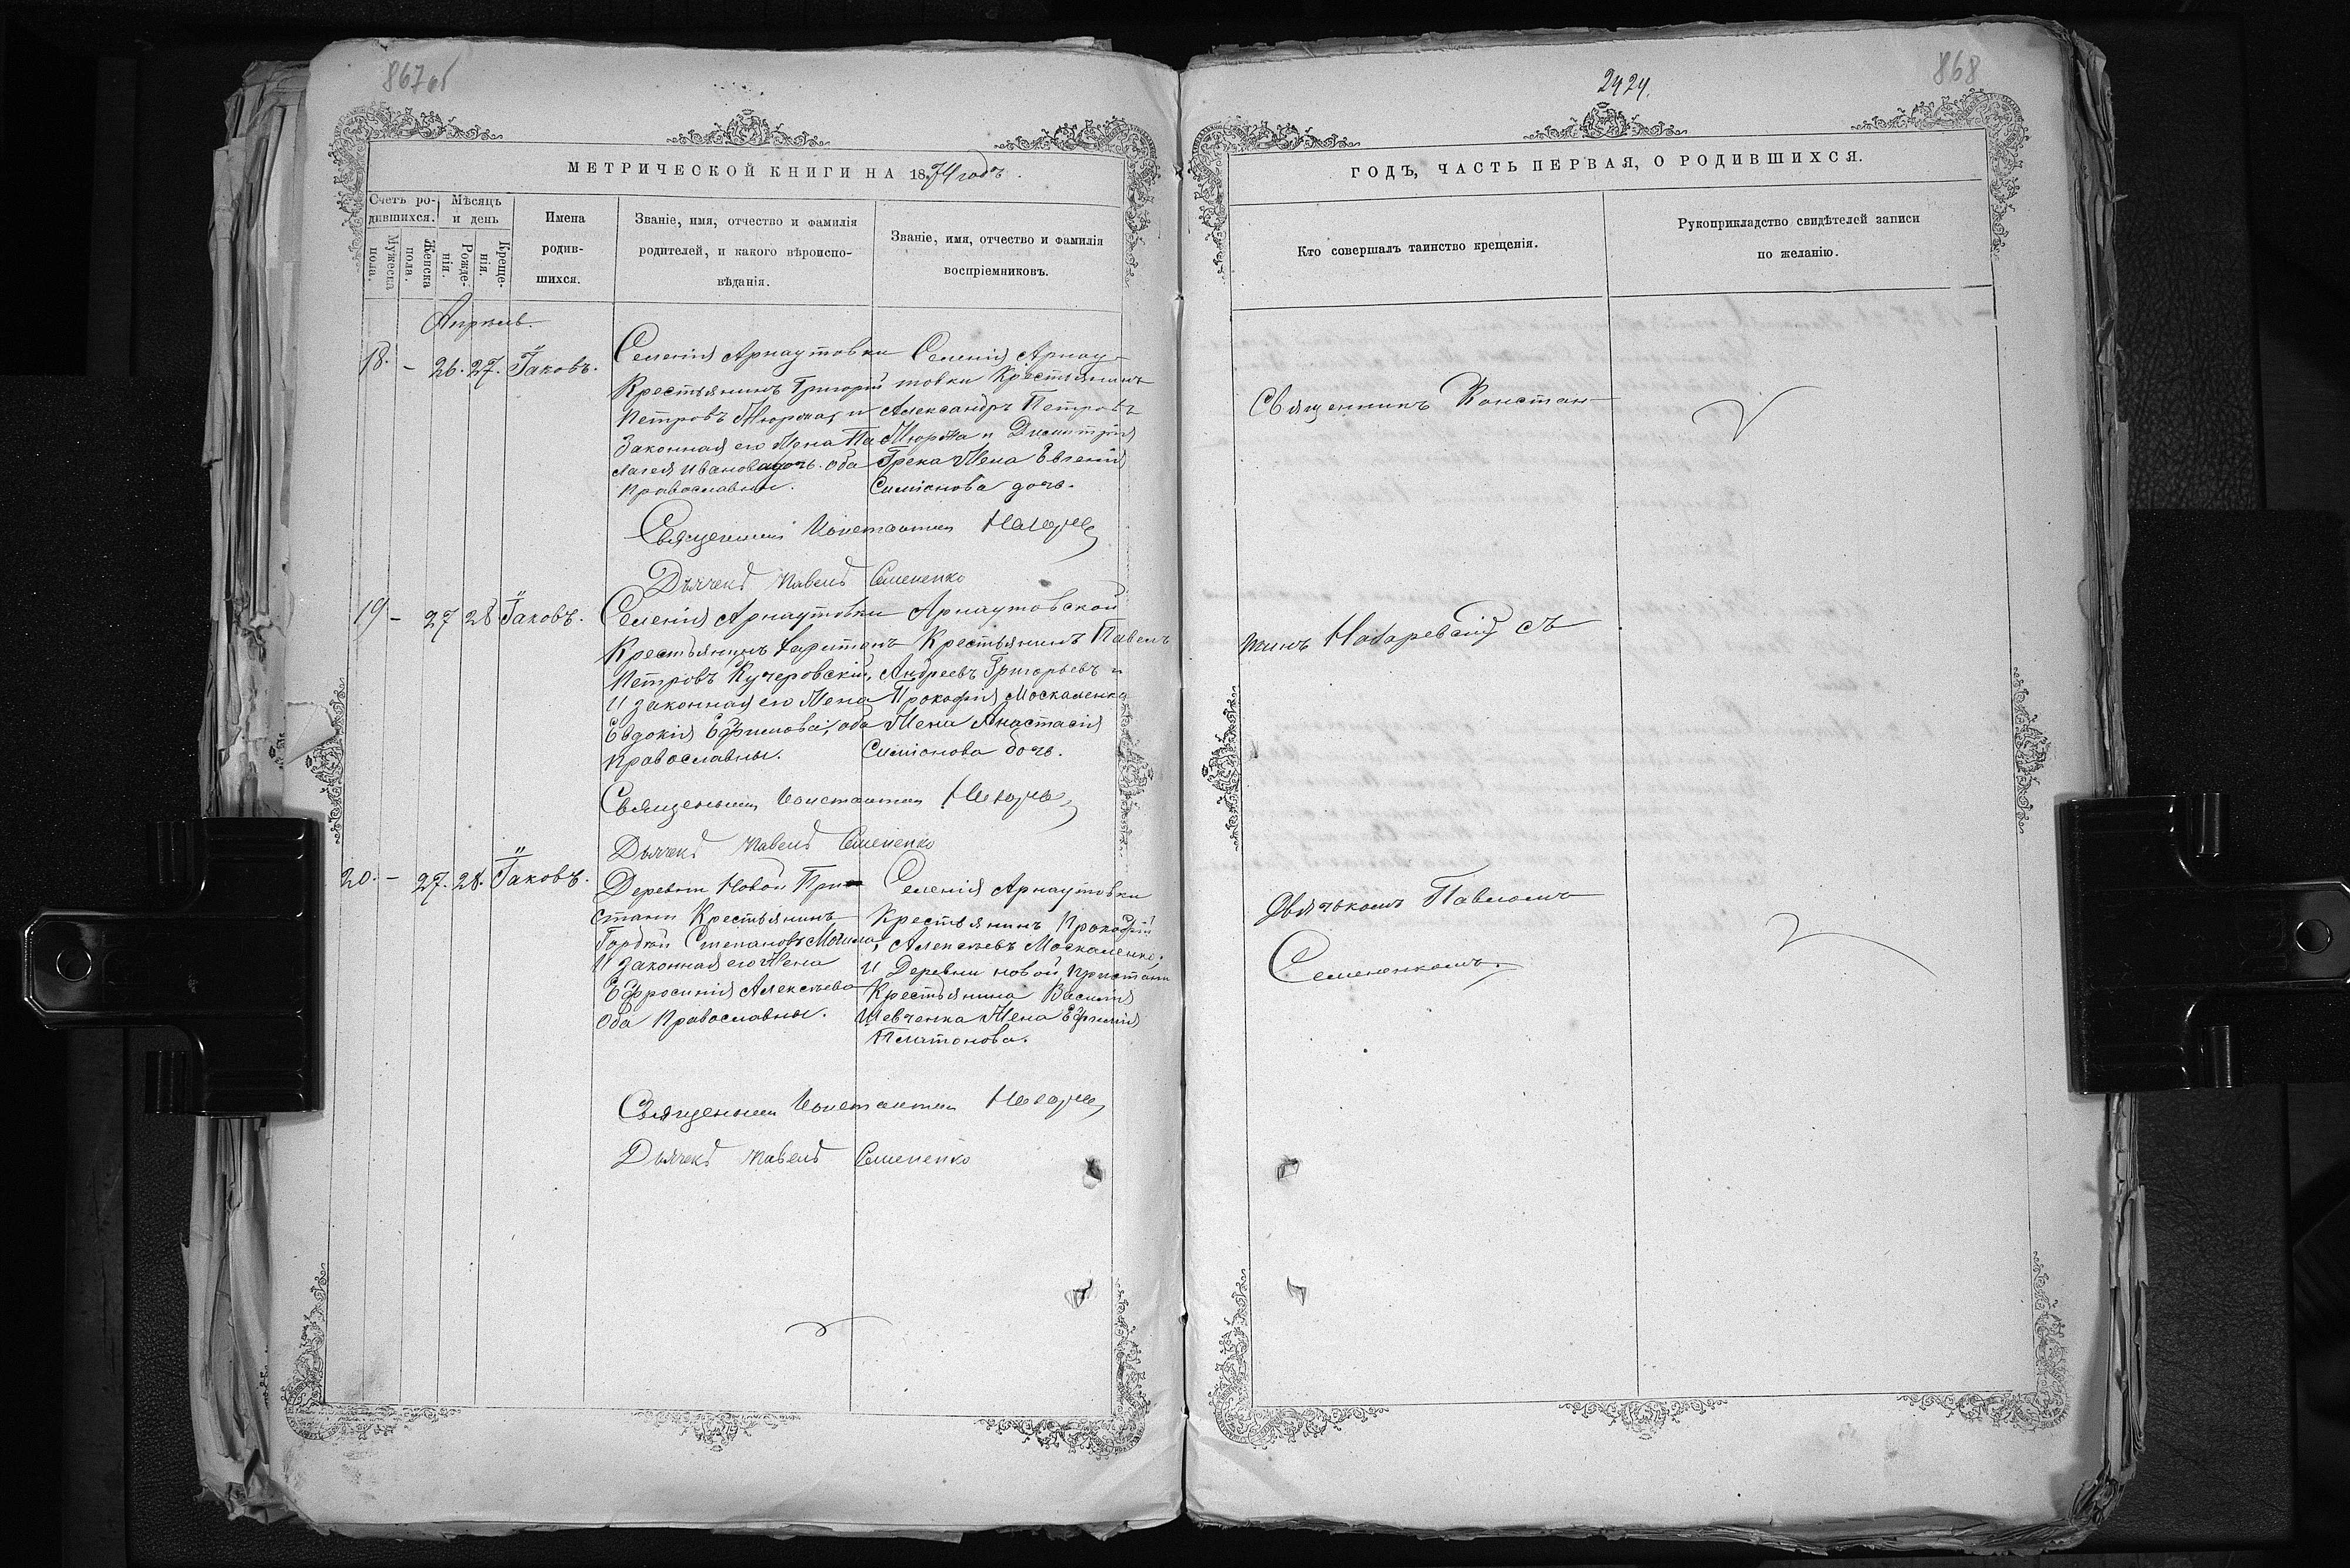 867об
МЕТРИЧЕСКОЙ КНИГИ НА 1874 годъ.
Счетъ ро-
дившихся.
Мѣсяцъ
и день
Мужеска
пола.
Женска
пола.
Рожде-
нія.
Креще-
нія.
Имена
родив-
шихся.
Званіе, имя, отчество и фамилія
родителей, и какого вѣроиспо-
вѣданія.
Званіе, имя, отчество и фамилія
воспріемниковъ.
Апрель.
18. – 26. 27. Іаковъ.
Селенія Арнаутовки
Крестьянинъ Григорій
Петровъ и
Законная его Жена Пе
лагея Иванова дочь. оба
Православны.
Селенія Арнау-
товки Крестьянинъ
Александръ Петровъ
и Димитрія
Грека Жена Евгенія
Симіонова дочь.
Священникъ Константин
Дьячекъ Павелъ Семененко
19 – 27 28 Іаковъ.
Селенія Арнаутовки
Крестьянинъ Харитонъ
Петровъ Кучеровскій,
И законная его Жена
Евдокія Ефимова, оба
Православны.
Арнаутовской
Крестьянинъ Павелъ
Андреевъ Григорьевъ и
Прокофія Москаленка
Жена Анастасія
Симіонова дочь.
Священникъ Константин
Дьячекъ Павелъ Семененко
20. – 27. 28. Іаковъ.
Деревни Новой При
стани Крестьянинъ
Гордѣй Степановъ Могила,
И законная его Жена
Ефросинія Алексѣева
Оба Православны.
Селенія Арнаутовки
Крестьянинъ Прокофій
Алексѣевъ Москаленко,
И Деревни новой Пристани
Крестьянина Василія
Шевченка Жена Ефимія
Платонова.
Священникъ Константин
Дьячекъ Павелъ Семененко
2424.
868
ГОДЪ, ЧАСТЬ ПЕРВАЯ, О РОДИВШИХСЯ.
Кто совершалъ таинство крещенія.
Рукоприкладство свидѣтелей записи
по желанію.
Священникъ Констан-
тинъ Назаревскій съ
Дьячкомъ Павломъ
Семененкомъ.